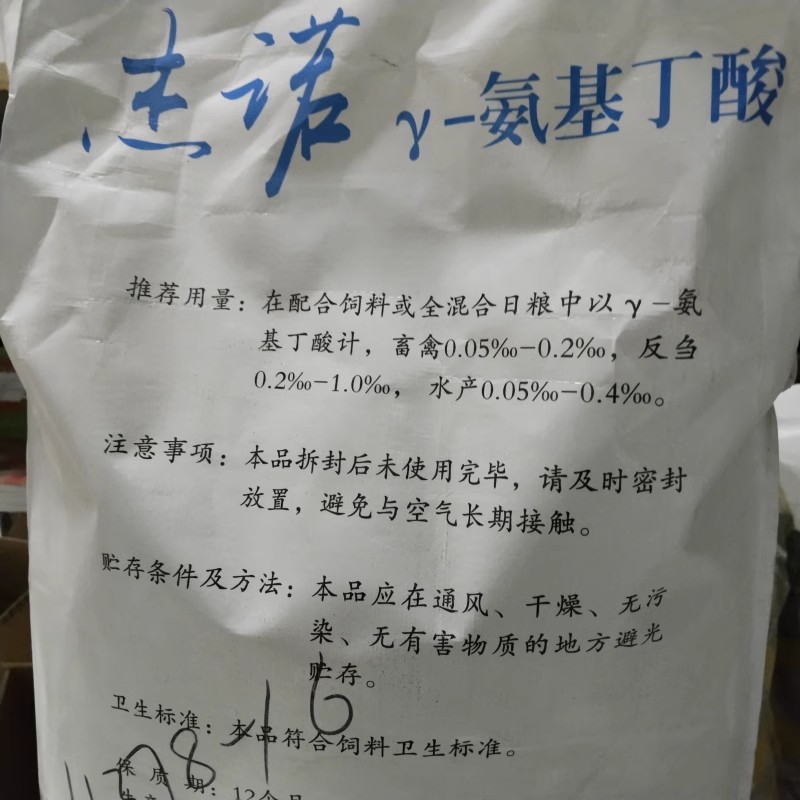 杰诺 γ-氨基丁酸
推荐用量：在配合饲料或全混合日粮中以 γ-氨
基丁酸计，畜禽0.05‰-0.2‰，反刍
0.2‰-1.0‰，水产0.05‰-0.4‰。
注意事项：本品拆封后未使用完毕，请及时密封
放置，避免与空气长期接触。
贮存条件及方法：本品应在通风、干燥、无污
染、无有害物质的地方避光
贮存。
卫生标准：本品符合饲料卫生标准。
保质期：12个月